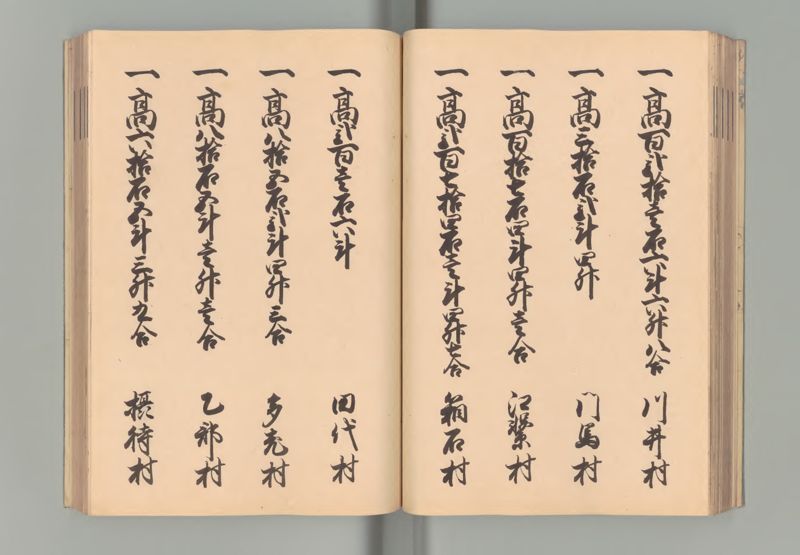 一 高百弐拾壱石六斗六升八合 川井村
一 高三拾石弐斗四升 門馬村
一 高百拾七石四斗四升壱合 江繋村
一 高弐百七拾四石壱斗四升七合 箱石村
一 高弐百壱石六斗 田代村
一 高八拾五石弐斗四升三合 村
一 高八拾石五斗壱升壱合 乙部村
一 高六拾石五斗三升九合 摂待村